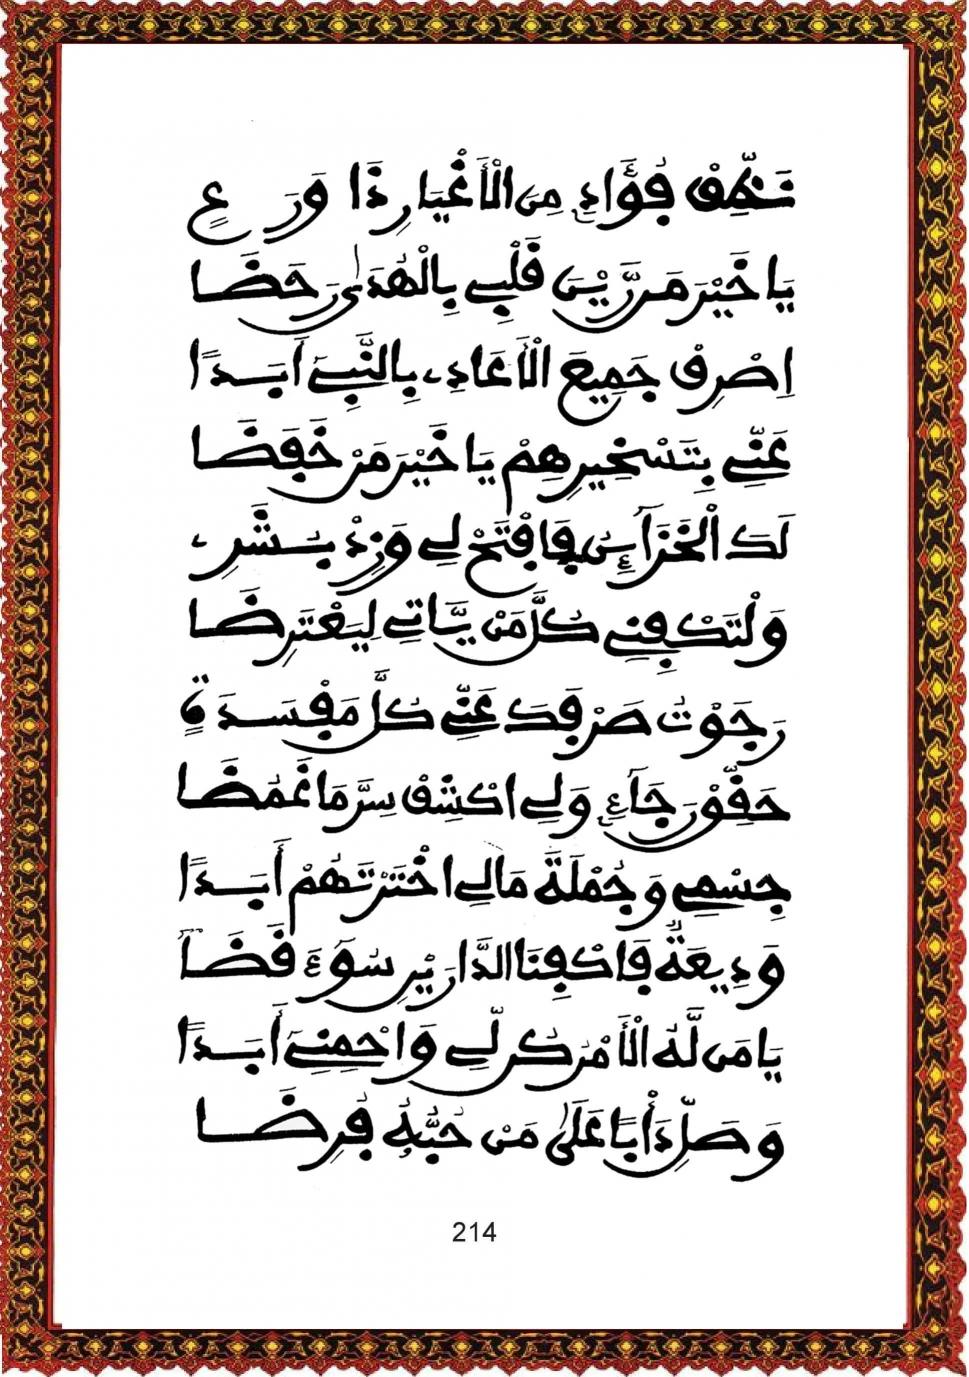 نَظِّفْ فُؤَادِے مِنَ الْأَغْيَارِ ذَا وَرَعٍ
يَا خَيْرَ مَن زَيَّنَ قَلْبِے بِالْهُدَىٰ رَحَضَا
اِصْرِفْ جَمِيعَ الْأَعَادِے بِالنَّبِےِّ أَبَداً
عَنِّے بِتَسْخِيرِهِمْ يَا خَيْرَ مَنْ خَفَضَا
لَكَ الْخَزَآئِنُ فَافْتَحْ لِے وَزِدْ بَشَرِے
وَلْتَكْفِنِے كُلَّ مَنْ يَّاتِے لِيَعْتَرِضَا
رَجَوْتُ صَرْفَكَ عَنِّے كُلَّ مَفْسَدَةٍ
حَقِّقْ رَجَآءِے وَلِے اكْشِفْ سِرَّ مَا غَمُضَا
جِسْمِے وَجُمْلَةَ مَا لِے اخْتَرْتَهُمْ أَبَداً
وَدِيعَةً فَاكْفِنَا الدَّارَيْنِ سُوٓءَ قَضَا
يَا مَن لَّهُ الْأَمْرُ كُن لِّے وَاحْمِنِے أَبَداً
وَصَلِّ دَأْباً عَلَىٰ مَنْ حُبُّهُ فُرِضَا
214